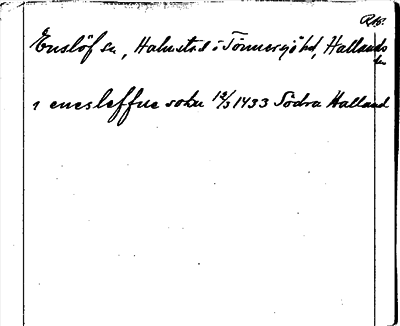 Enslöf sn, Halmstad o Tönnersjö hd, Hallands
ln
i enesleffue sokn 12/3 1433 Södra Halland